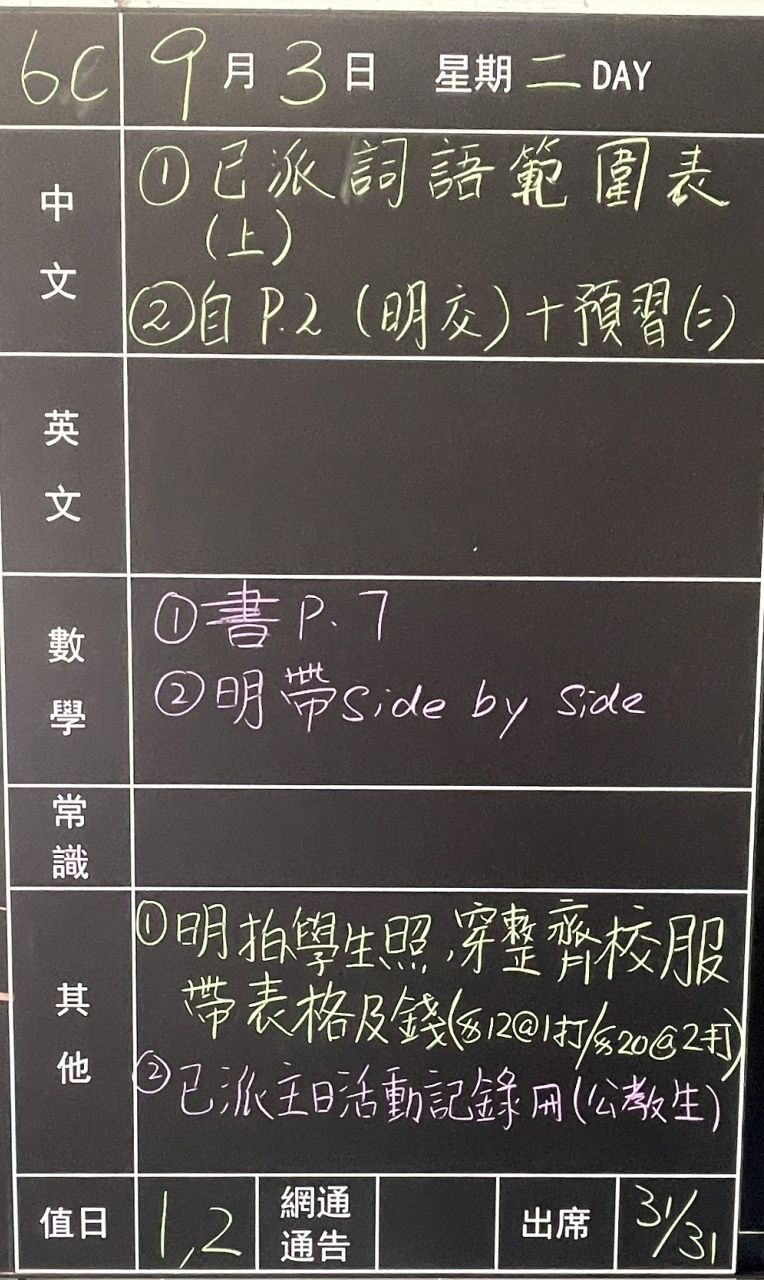 6C 9月3日 星期二DAY
中文 ①已派詞語範圍表
(上)
②自P.2 (明交)+預習(二)
英文
數學 ①書P.7
②明帶Side by Side
常識
其他 ①明拍學生照,穿整齊校服
帶表格及錢($12@1打/$20@2打)
②已派主日活動記錄冊(公教生)
值日 1,2 網通通告 出席 31/31